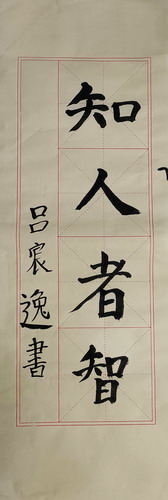 知人者智
吕宸逸書